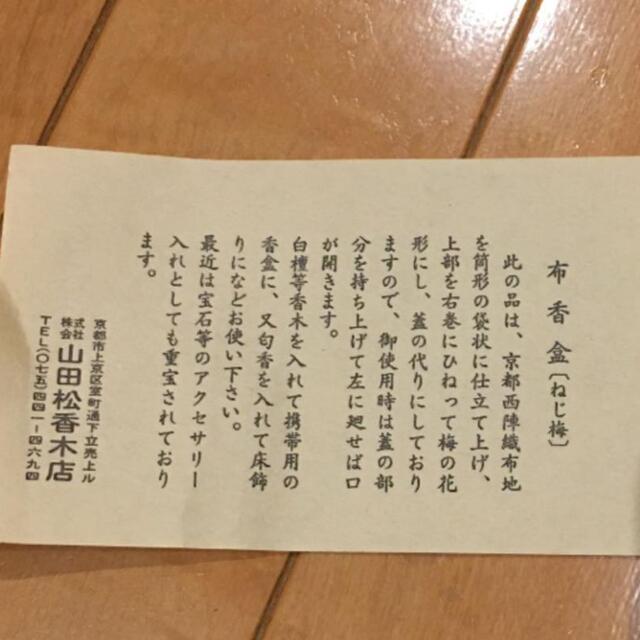 布香盒〔ねじ梅〕
此の品は、京都西陣織布地
を筒形の袋状に仕立て上げ、
上部を右巻にひねって梅の花
形にし、蓋の代りにしており
ますので、御使用時は蓋の部
分を持ち上げて左に廻せば口
が開きます。
白檀等香木を入れて携帯用の
香盒に、又匂香を入れて床飾
りになどお使い下さい。
最近は宝石等のアクセサリー
入れとしても重宝されており
ます。
京都市上京区室町通下立売上ル
株式会社 山田松香木店
TEL(〇七五)四四一-四六九四